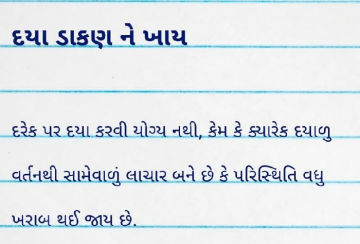 દયા ડાકણ ને ખાય
દરેક પર દયા કરવી યોગ્ય નથી, કેમ કે ક્યારેક દયાળુ
વર્તનથી સામેવાળું લાચાર બને છે કે પરિસ્થિતિ વધુ
ખરાબ થઈ જાય છે.